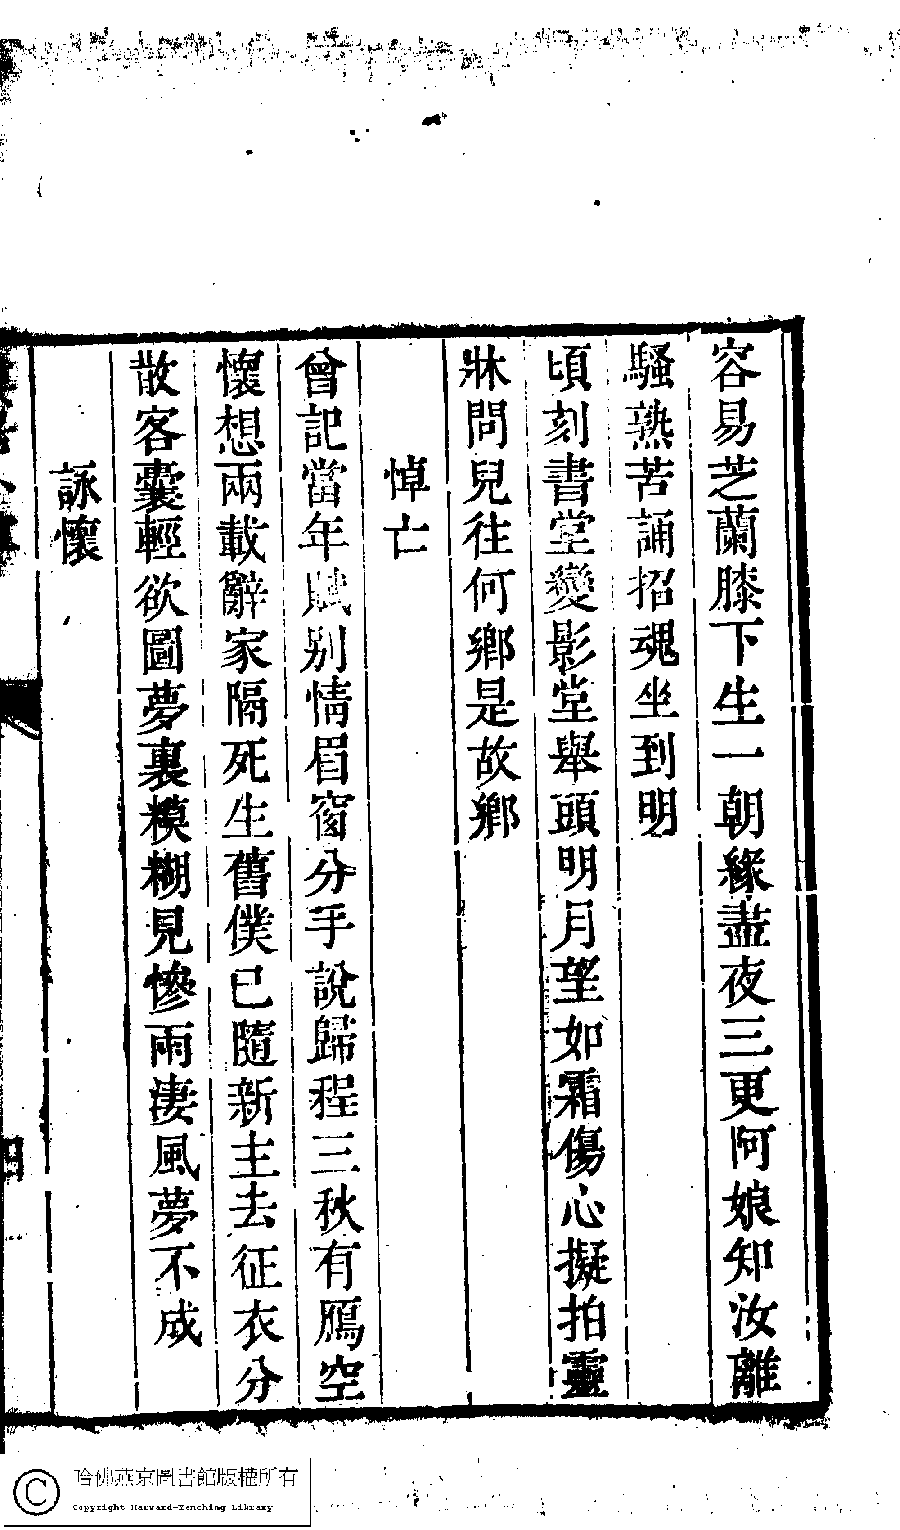 容易芝蘭膝下生一朝緣盡夜三更阿娘知汝離
騷熟苦誦招魂坐到明
頃刻書堂變影堂舉頭明月望如霜傷心擬拍靈
牀問兒往何鄉是故鄉
悼亡
曾記當年賦別情眉窗分手說歸程三秋有鴈空
懷想兩載辭家隔死生舊僕已隨新主去征衣分
散客囊輕欲圖夢裏模糊見慘雨淒風夢不成
詠懷
四
哈佛燕京圖書館版權所有
Copyright Harvard-Yenching Library